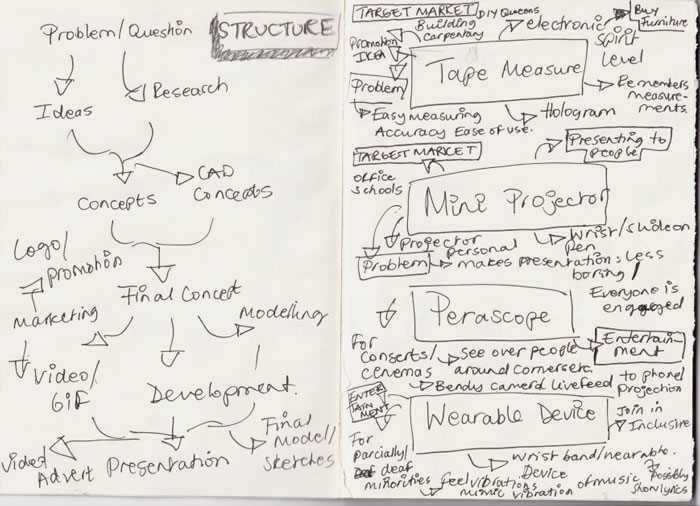 Problem/Question
STRUCTURE
Ideas
Research
Concepts
CAD
Concepts
Logo/
promotion
Final Concept
Marketing
Modelling
Video/
GIF
Development.
Final
Model/
Sketches
Video
Advert
Presentation
TARGET MARKET
DIY Queens
Building
Carpentary
electronic
spirit
level
Buy
Furniture
Promotion
IKEA
Tape Measure
Problem
Remembers
measure-
ments.
Easy measuring
Accuracy Ease of use.
Hologram
TARGET MARKET
Presenting to
people
office
schools
Mini Projector
Projector
personal
Wrist/slide on
pen
Problem
makes presentations less
boring/
Everyone is
engaged
Perascope
For
conserts/
cenemas
see over people
around corners etc.
Entertain-
ment
Bendy camera livefeed
to phone/
Projection
ENTER
TAIN
MENT
Wearable Device
Join in
Inclusive
For
parcially/
deaf
minorities
Wrist band/wearable.
Device
feel vibrations
mimic vibration
of music
Possibly
show lyrics